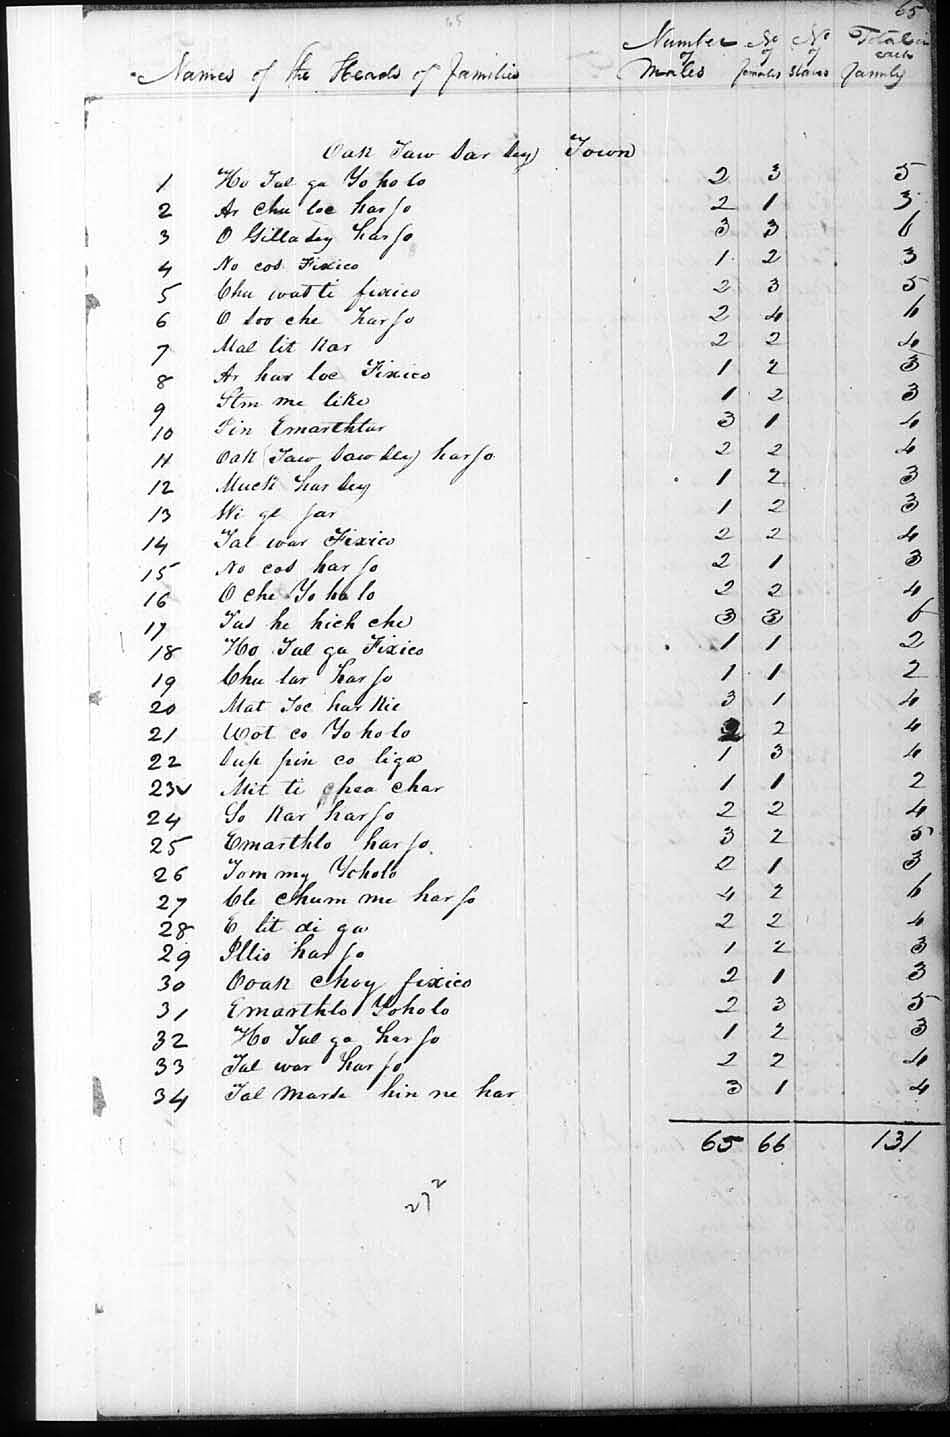 65
65
Number No No Total in
of of of each
Names of the Heads of families Males females Slaves family
Oak Taw Sar Sey Town
1 Ho Tul ga Yoholo 2 3 5
2 Ar chu loc harjo 2 1 3
3 O Gillasey harjo 3 3 6
4 No cos Fixico 1 2 3
5 Chu watti fixico 2 3 5
6 O soo che harjo 2 4 6
7 Mal lit kar 2 2 4
8 Ar har loc Fixico 1 2 3
9 Stm me like 1 2 3
10 Pin Emarthlar 3 1 4
11 Oak Taw Saw Sey harjo 2 2 4
12 Muck har Sey 1 2 3
13 Wi ge jar 1 2 3
14 Tal war Fixico 2 2 4
15 No cos harjo 2 1 3
16 O che Yo ho lo 2 2 4
17 Tus he hich che 3 3 6
18 Ho Tul ga Fixico 1 1 2
19 Chu lar harjo 1 1 2
20 Mat Toc har kie 3 1 4
21 Wot co Yoholo 2 2 4
22 Sup pin co liga 1 3 4
23 Mit ti chea char 1 1 2
24 So kar harjo 2 2 4
25 Emarthlo harjo 3 2 5
26 Tommy Yoholo 2 1 3
27 Cle chum me harjo 4 2 6
28 E lit di ga 2 2 4
29 Illis harjo 1 2 3
30 Ooak choy fixico 2 1 3
31 Emarthlo Yoholo 2 3 5
32 Ho Tul ga harjo 1 2 3
33 Tal war harjo 2 2 4
34 Tal marse hin ne har 3 1 4
65 66 131